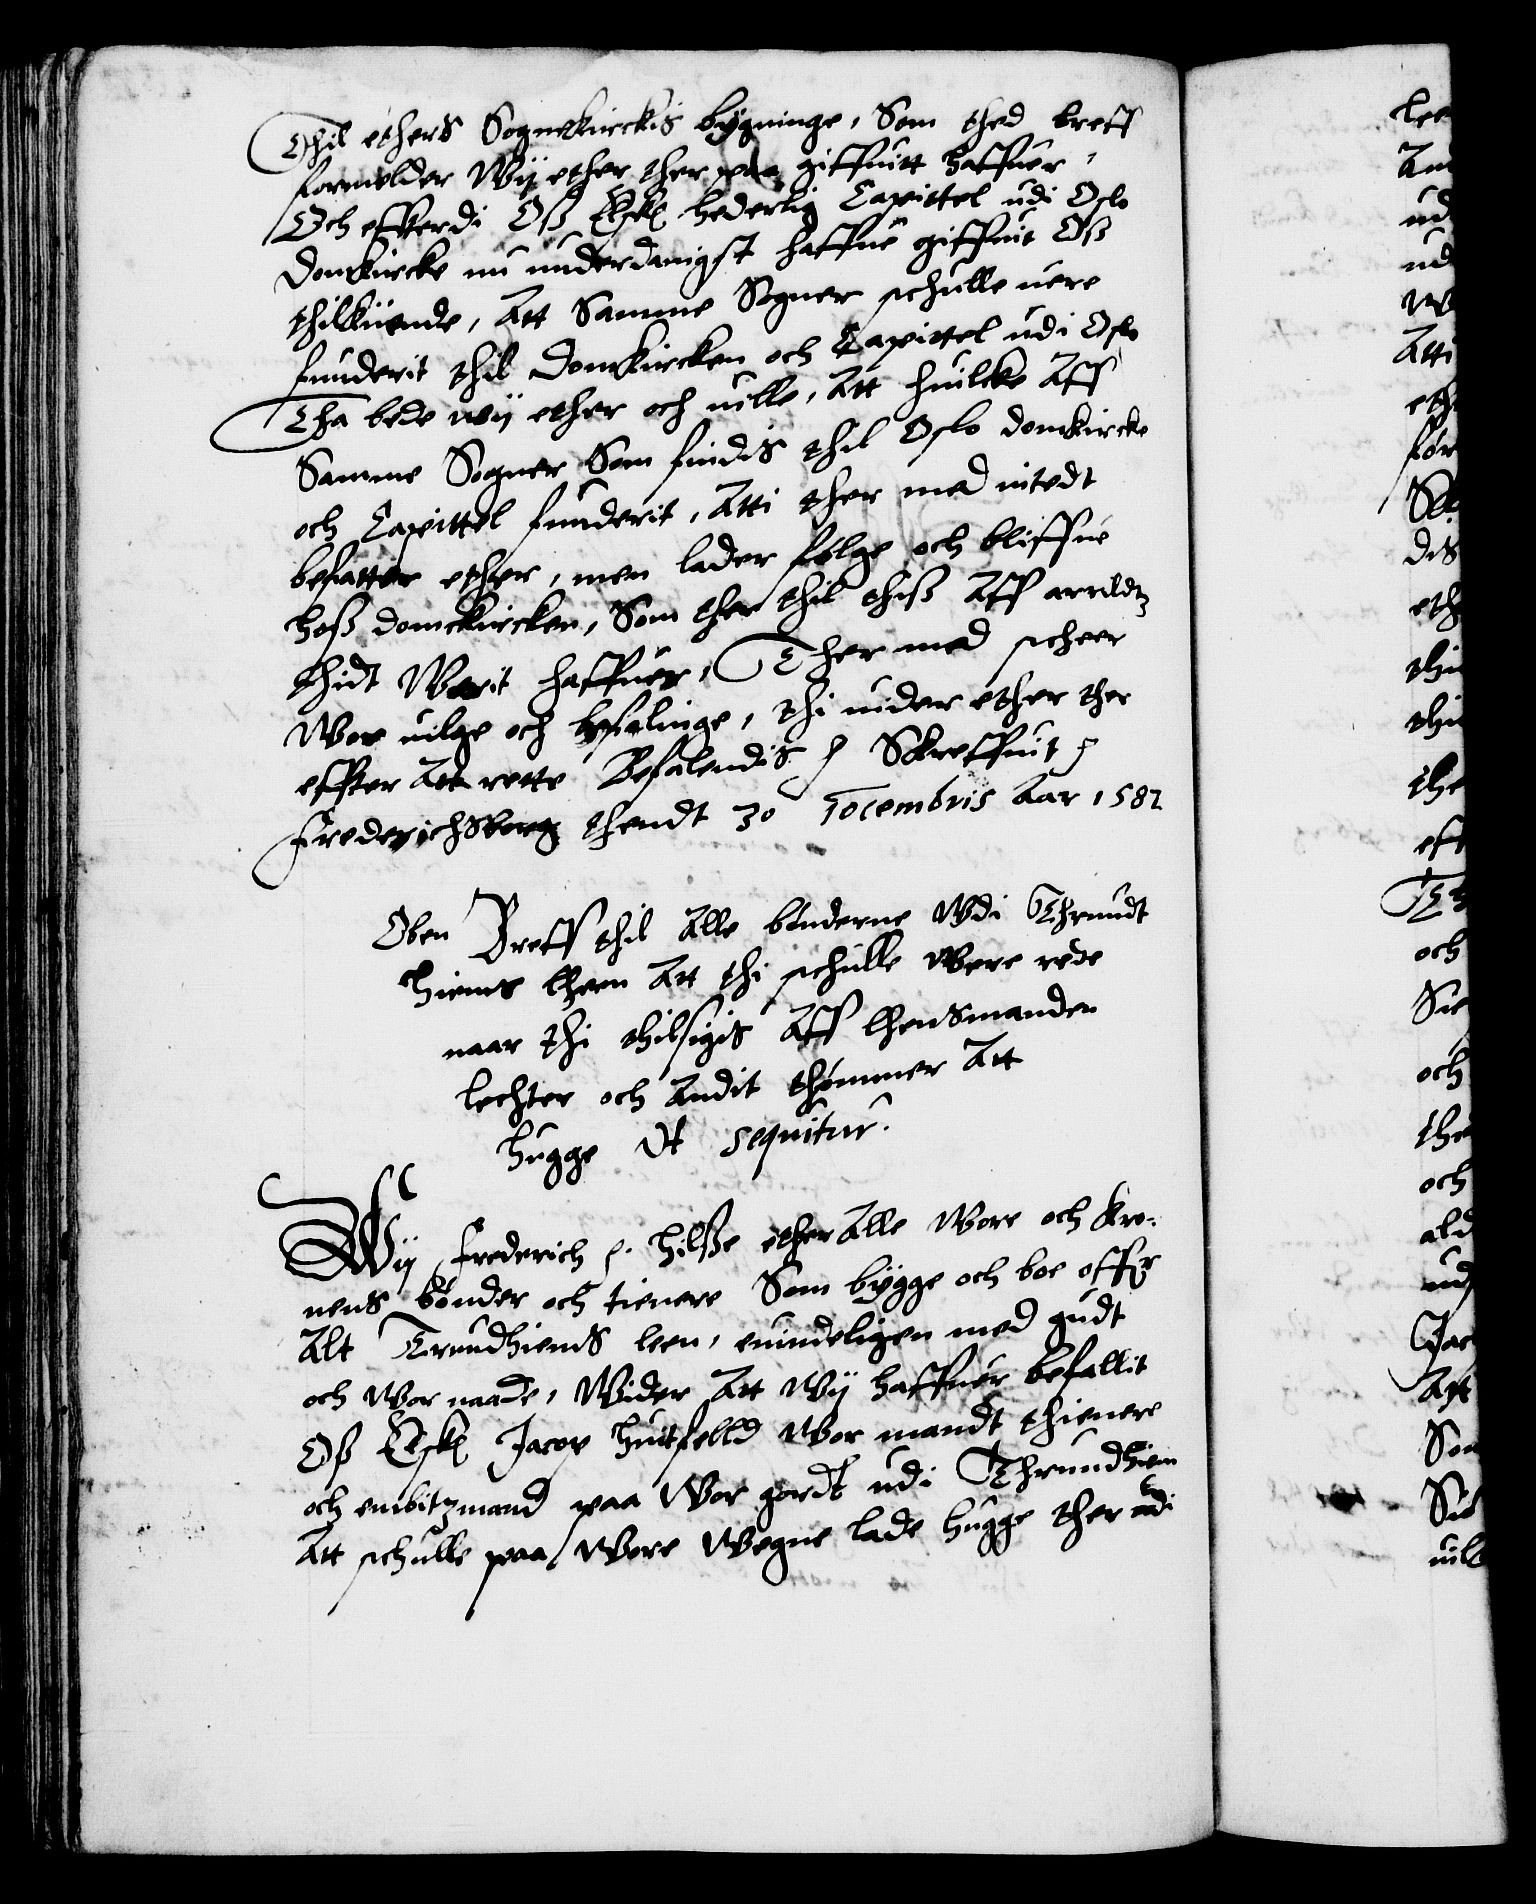 Thil ethers Sognekirckis bygninge, Som thed breff
formelder Wij ether ther paa giffuitt haffuer,
Och effterdi Oß Elskel hederlig Capittel udi Oslo
Domkircke nu underdanigst haffue giffuit Oß
thilkiende, Att Samme Sogner schulle uere
funderit thil Domkircken och Capittel udi Oslo
Tha bede wij ether och uille, Att huilcke Aff
Samme Sogner Som findis thil Oslo domkircke
och Capittel funderit, Atti ther med intedt
befatter ether, men lader følge och bliffue
hoß domckircken, Som ther thil thiß Aff arrildtz
thidt Werit haffuer, Ther med scheer
Wor uilge och befalinge, thi uider ether ther
effter Att rette Befalendis Skreffuit
Frederichsborg thendt 30 Decembris Aar 1582
Oben Breff thil Alle bønderne Wdi Thrundt
hiems lheen Att thi schulle Were rede
naar thi thilsigis Aff lhensmanden
lechter och Andit thømmer Att
hugge Vt sequitur.
Wij Frederich hilße ether Alle Wore och Kro-
nens bønder och tienere Som bygge och boe offuer
Alt Trundhiems leen, euindeligen med gudt
och Wor naade, Wider Att Wij haffuer befallit
Oß Elskel Jacop huitfelld Wor mandt thienere
och embitzmand paa Wor gordt udi Thrundhiem
Att schulle paa Wore Wegne lade hugge ther udi